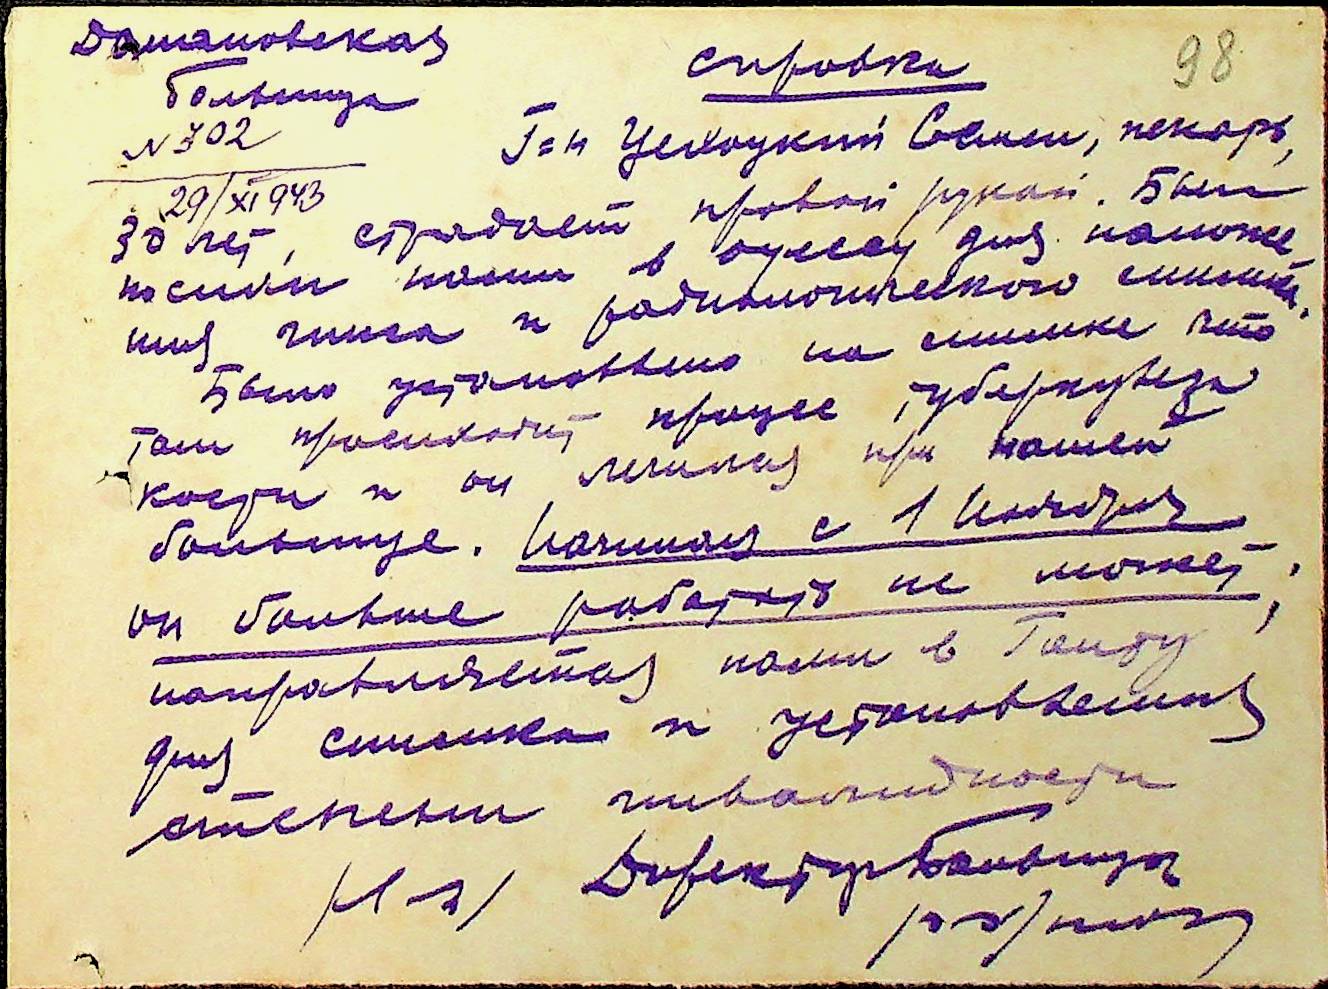 Доманевская
больница
№ 302
29/XI 943
98
справка
Г=н Цехоцкий Семен, пекарь,
30 лет, страдает правой рукой. Был
послан нами в одессу для наложе
ния гипса и радиологического снимка.
Было установлено на снимке что
там происходит процес туберкулеза
кости и он лечился при нашей
больнице. Начиная с 1 Ноября
он больше работать не может,
направляется нами в Голту
для снимка и установления
степени инвалидности
Директор Больницы